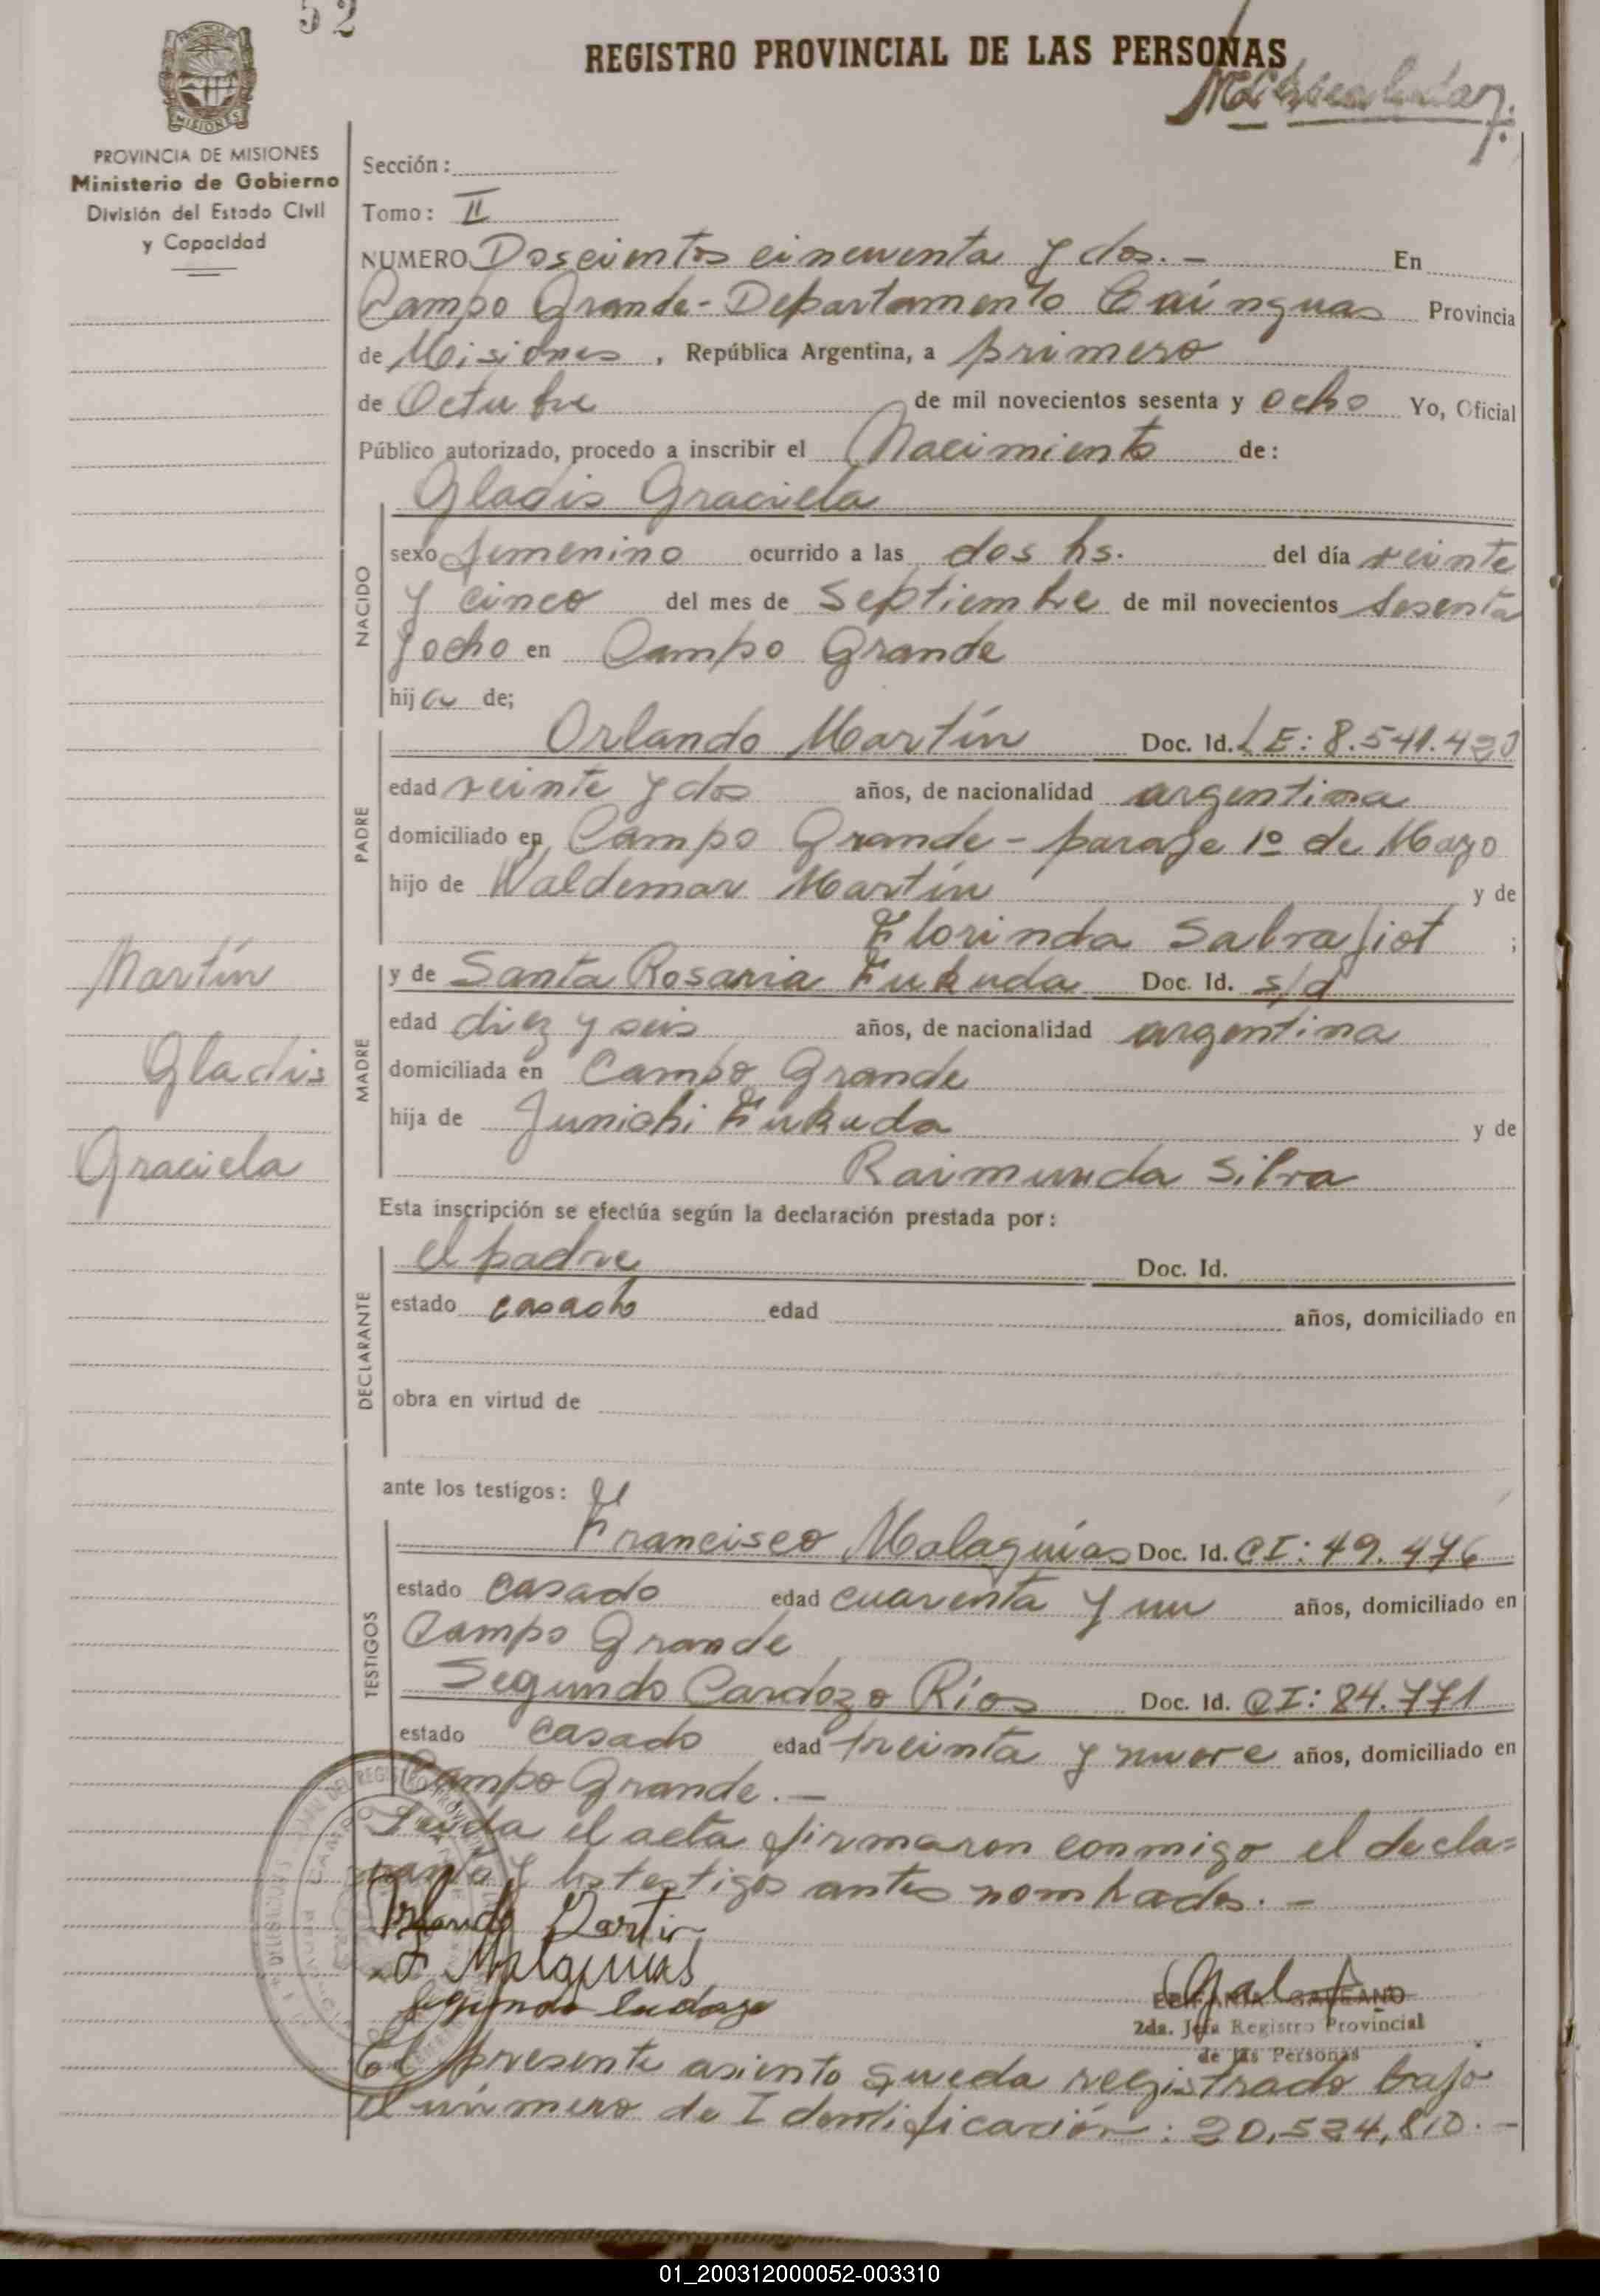 52
REGISTRO PROVINCIAL DE LAS PERSONAS
MISIONES
PROVINCIA DE MISIONES
Ministerio de Gobierno
División del Estado Civil
y Capacidad
Sección:
Tomo: II
NUMERO Doscientos cincuenta y dos.- En
Campo Grande - Departamento Cainguas Provincia
de Misiones, República Argentina, a primero
de Octubre de mil novecientos sesenta y ocho Yo, Oficial
Público autorizado, procedo a inscribir el Nacimiento de:
Gladis Graciela
NACIDO
sexo femenino ocurrido a las dos hs. del día veinte
y cinco del mes de Septiembre de mil novecientos sesenta
y ocho en Campo Grande
hija de;
PADRE
Orlando Martín Doc. Id. LE: 8.541.
edad veinte y dos años, de nacionalidad argentina
domiciliado en Campo Grande - paraje 1º de Mayo
hijo de Waldemar Martín y de
Florinda ;
Martín
Gladis
Graciela
MADRE
y de Santa Rosaria Fukuda Doc. Id. s/d
edad diez y seis años, de nacionalidad argentina
domiciliada en Campo Grande
hija de Junichi Fukuda y de
Raimunda Silva
Esta inscripción se efectúa según la declaración prestada por:
DECLARANTE
el padre Doc. Id.
estado casado edad años, domiciliado en
obra en virtud de
ante los testigos:
TESTIGOS
Francisco Malaguias Doc. Id. CI: 49.476
estado casado edad cuarenta y un años, domiciliado en
Campo Grande
Segundo Cardozo Ríos Doc. Id. CI: 84.771
estado casado edad treinta y nueve años, domiciliado en
Campo Grande.-
Leída el acta firmaron conmigo el decla=
rante y los testigos antes nombrados.-
Orlando Martin
F Malaguias
Segundo
EPIFANIA GALEANO
2da. Jefa Registro Provincial
de las Personas
El presente asiento queda registrado bajo
el número de Identificación: 20.524,810.-
01_200312000052-003310